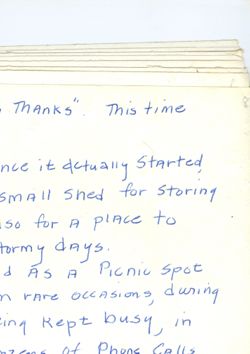 Thanks". This time
it actually started
small shed for storing
for a place to
days.
As a Picnic spot
rare occasions, during
Kept busy, in
of Phone Calls